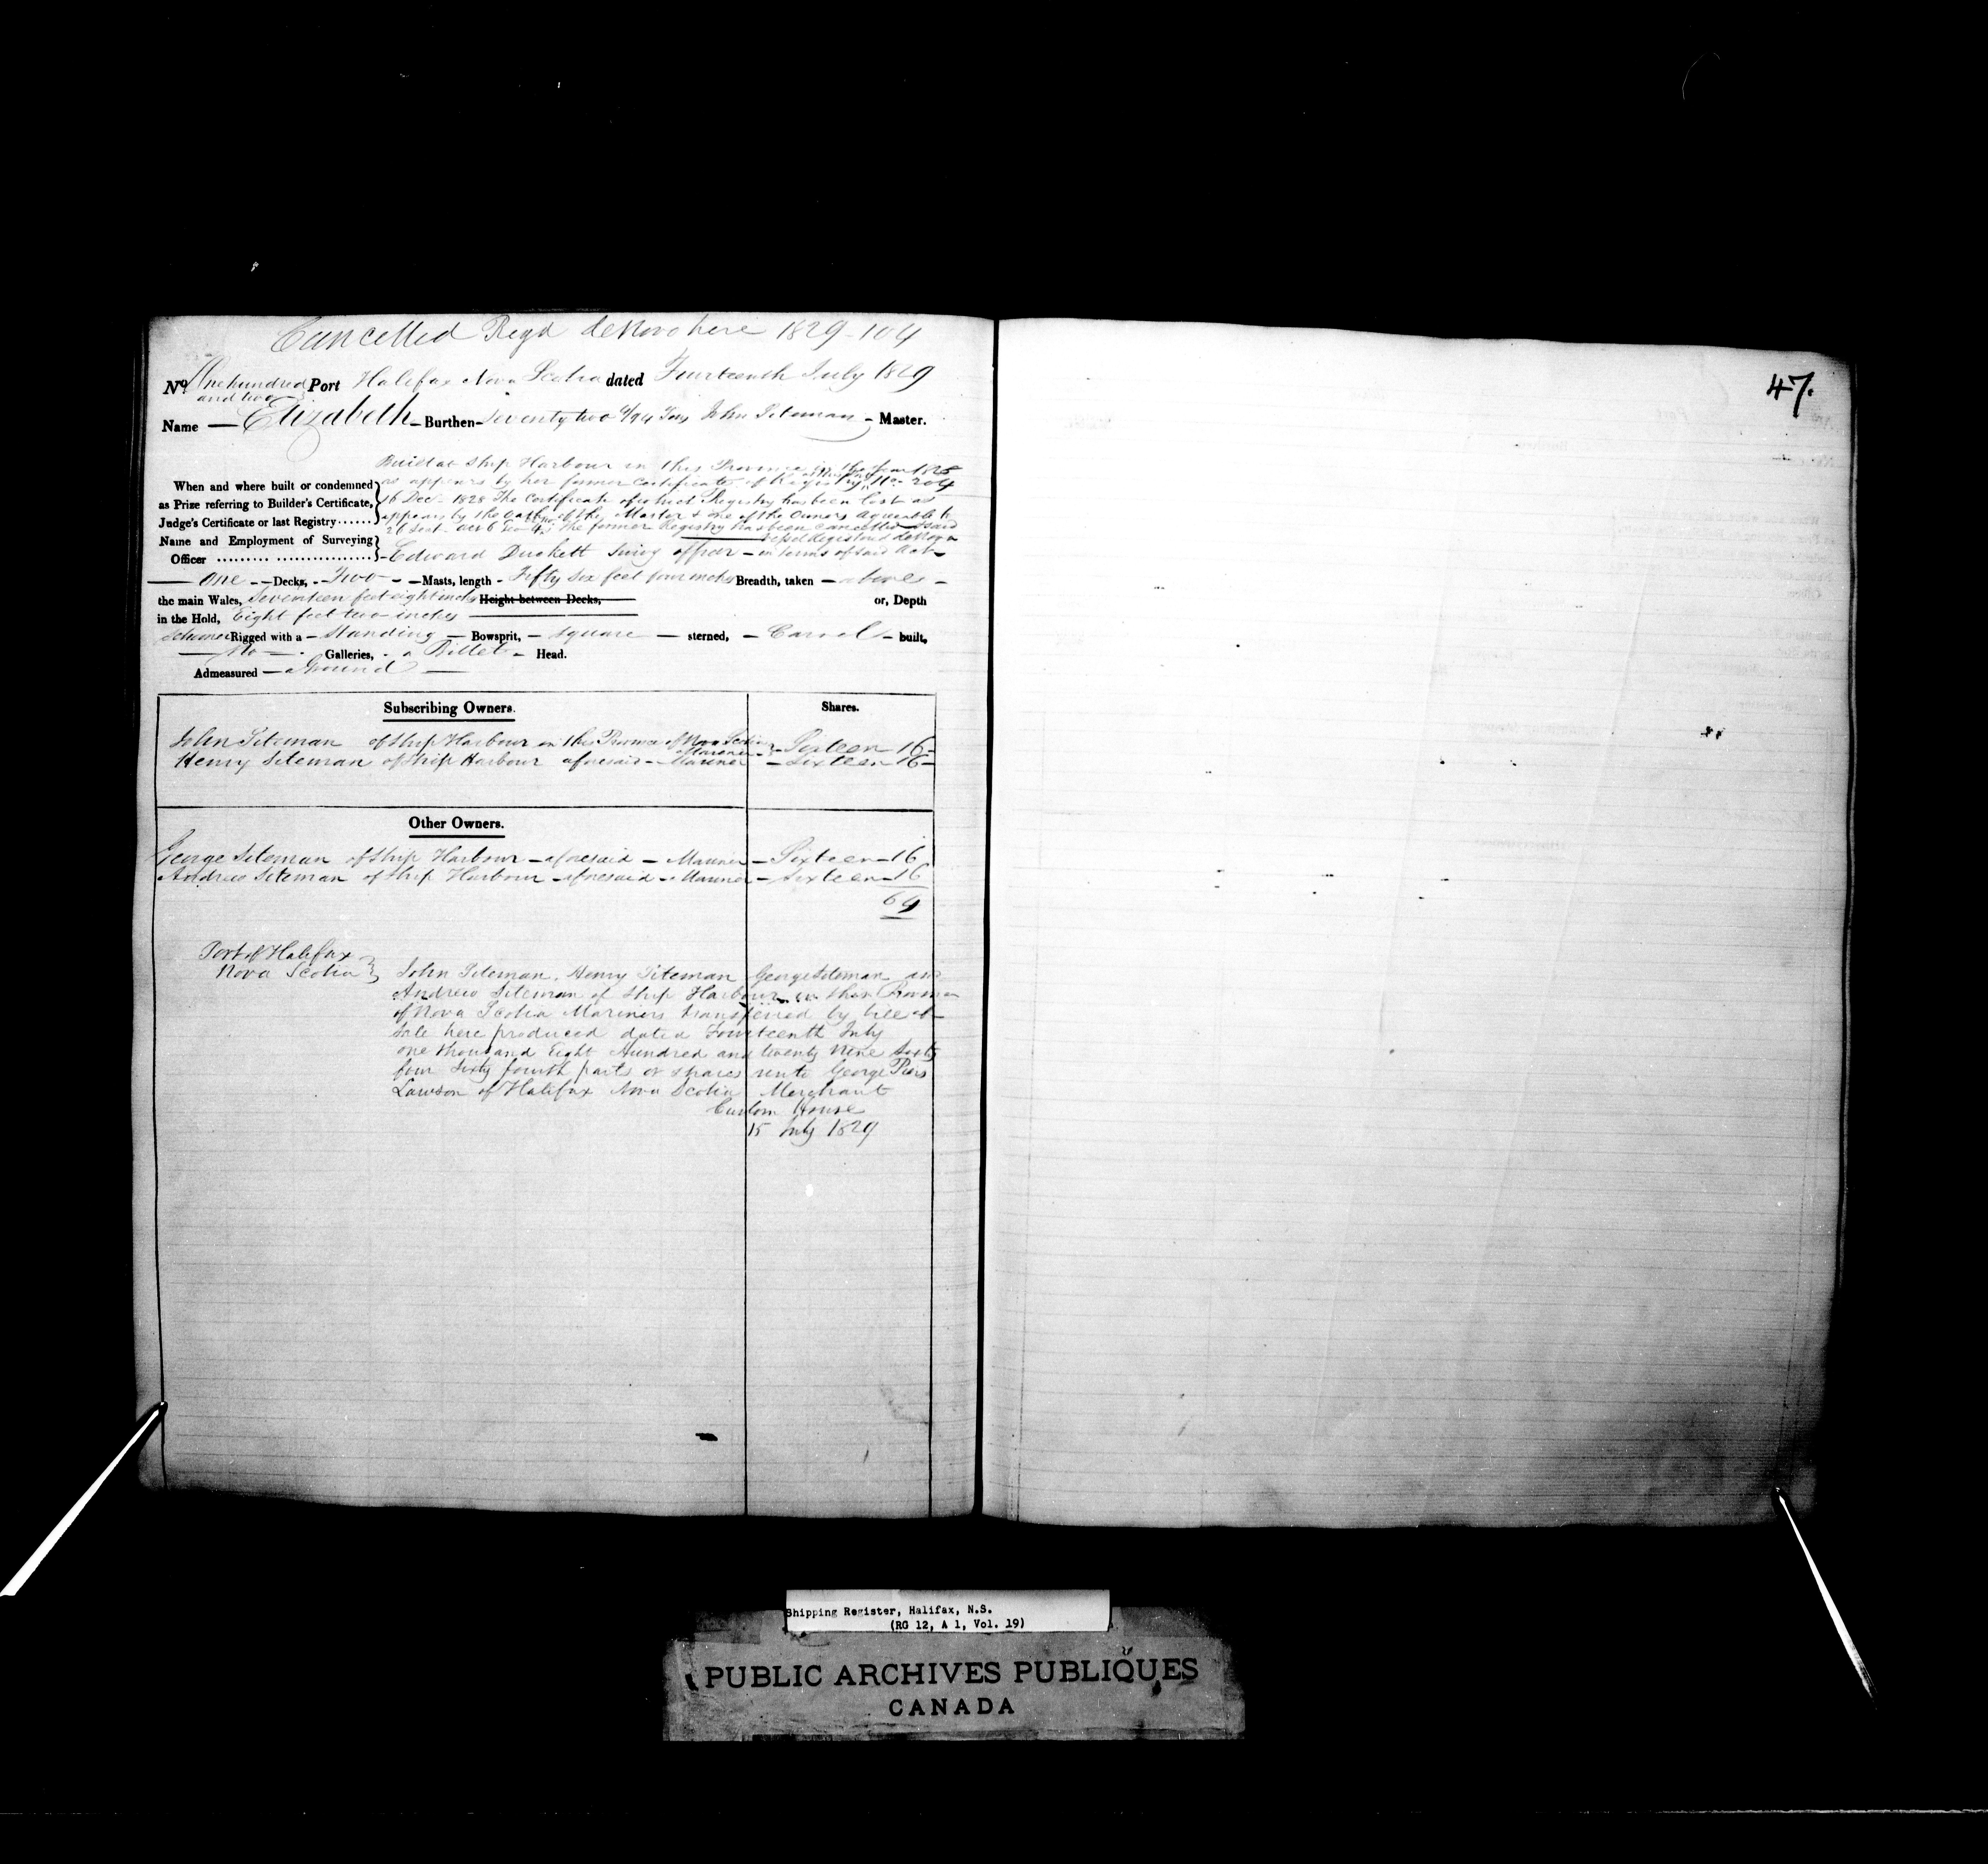 Cancelled Regd de Novo here 1829-104
No. One hundred and two Port Halifax Nova Scotia dated Fourteenth July 1829
Name — Elizabeth — Burthen — Seventy two /94 Tons John Siteman — Master.
Built at Ship Harbour in this Province in the Year 1828
When and where built or condemned as appears by her former Certificate of Registry No. 204
as Prize referring to Builder's Certificate, 16 Dec. 1828 The Certificate of which Registry has been lost as
Judge's Certificate or last Registry...... appears by the Oath of the Master & one of the Owners agreeable to
the former Registry has been cancelled & said
Name and Employment of Surveying vessel Registered de Novo
Officer ......... ............... Edward Duckett Surv'g officer — in terms of said Act —
— One — Decks, — Two — Masts, length — Fifty six feet four inches Breadth, taken — above —
the main Wales, Seventeen feet eight inches Height between Decks, or, Depth
in the Hold, Eight feet two inches
Schooner Rigged with a — Standing — Bowsprit, — square — sterned, — Carvel — built,
— No — Galleries, — a Billet — Head.
Admeasured — aGround —
Subscribing Owners. Shares.
John Siteman of Ship Harbour in this Province of Nova Scotia Mariner — Sixteen 16 —
Henry Siteman of Ship Harbour aforesaid — Mariner — Sixteen 16 —
Other Owners.
George Siteman of Ship Harbour — aforesaid — Mariner — Sixteen — 16
Andrew Siteman of Ship Harbour — aforesaid — Mariner — Sixteen — 16
64
Port of Halifax
Nova Scotia } John Siteman, Henry Siteman George Siteman and
Andrew Siteman of Ship Harbour in the Province
of Nova Scotia Mariners transferred by bill of
Sale here produced dated Fourteenth July
one thousand Eight Hundred and twenty nine Sixty
four Sixty fourth parts or shares unto George Piers
Lawson of Halifax Nova Scotia Merchant
Custom House
15 July 1829
47.
Shipping Register, Halifax, N.S.
(RG 12, A 1, Vol. 19)
PUBLIC ARCHIVES PUBLIQUES
CANADA